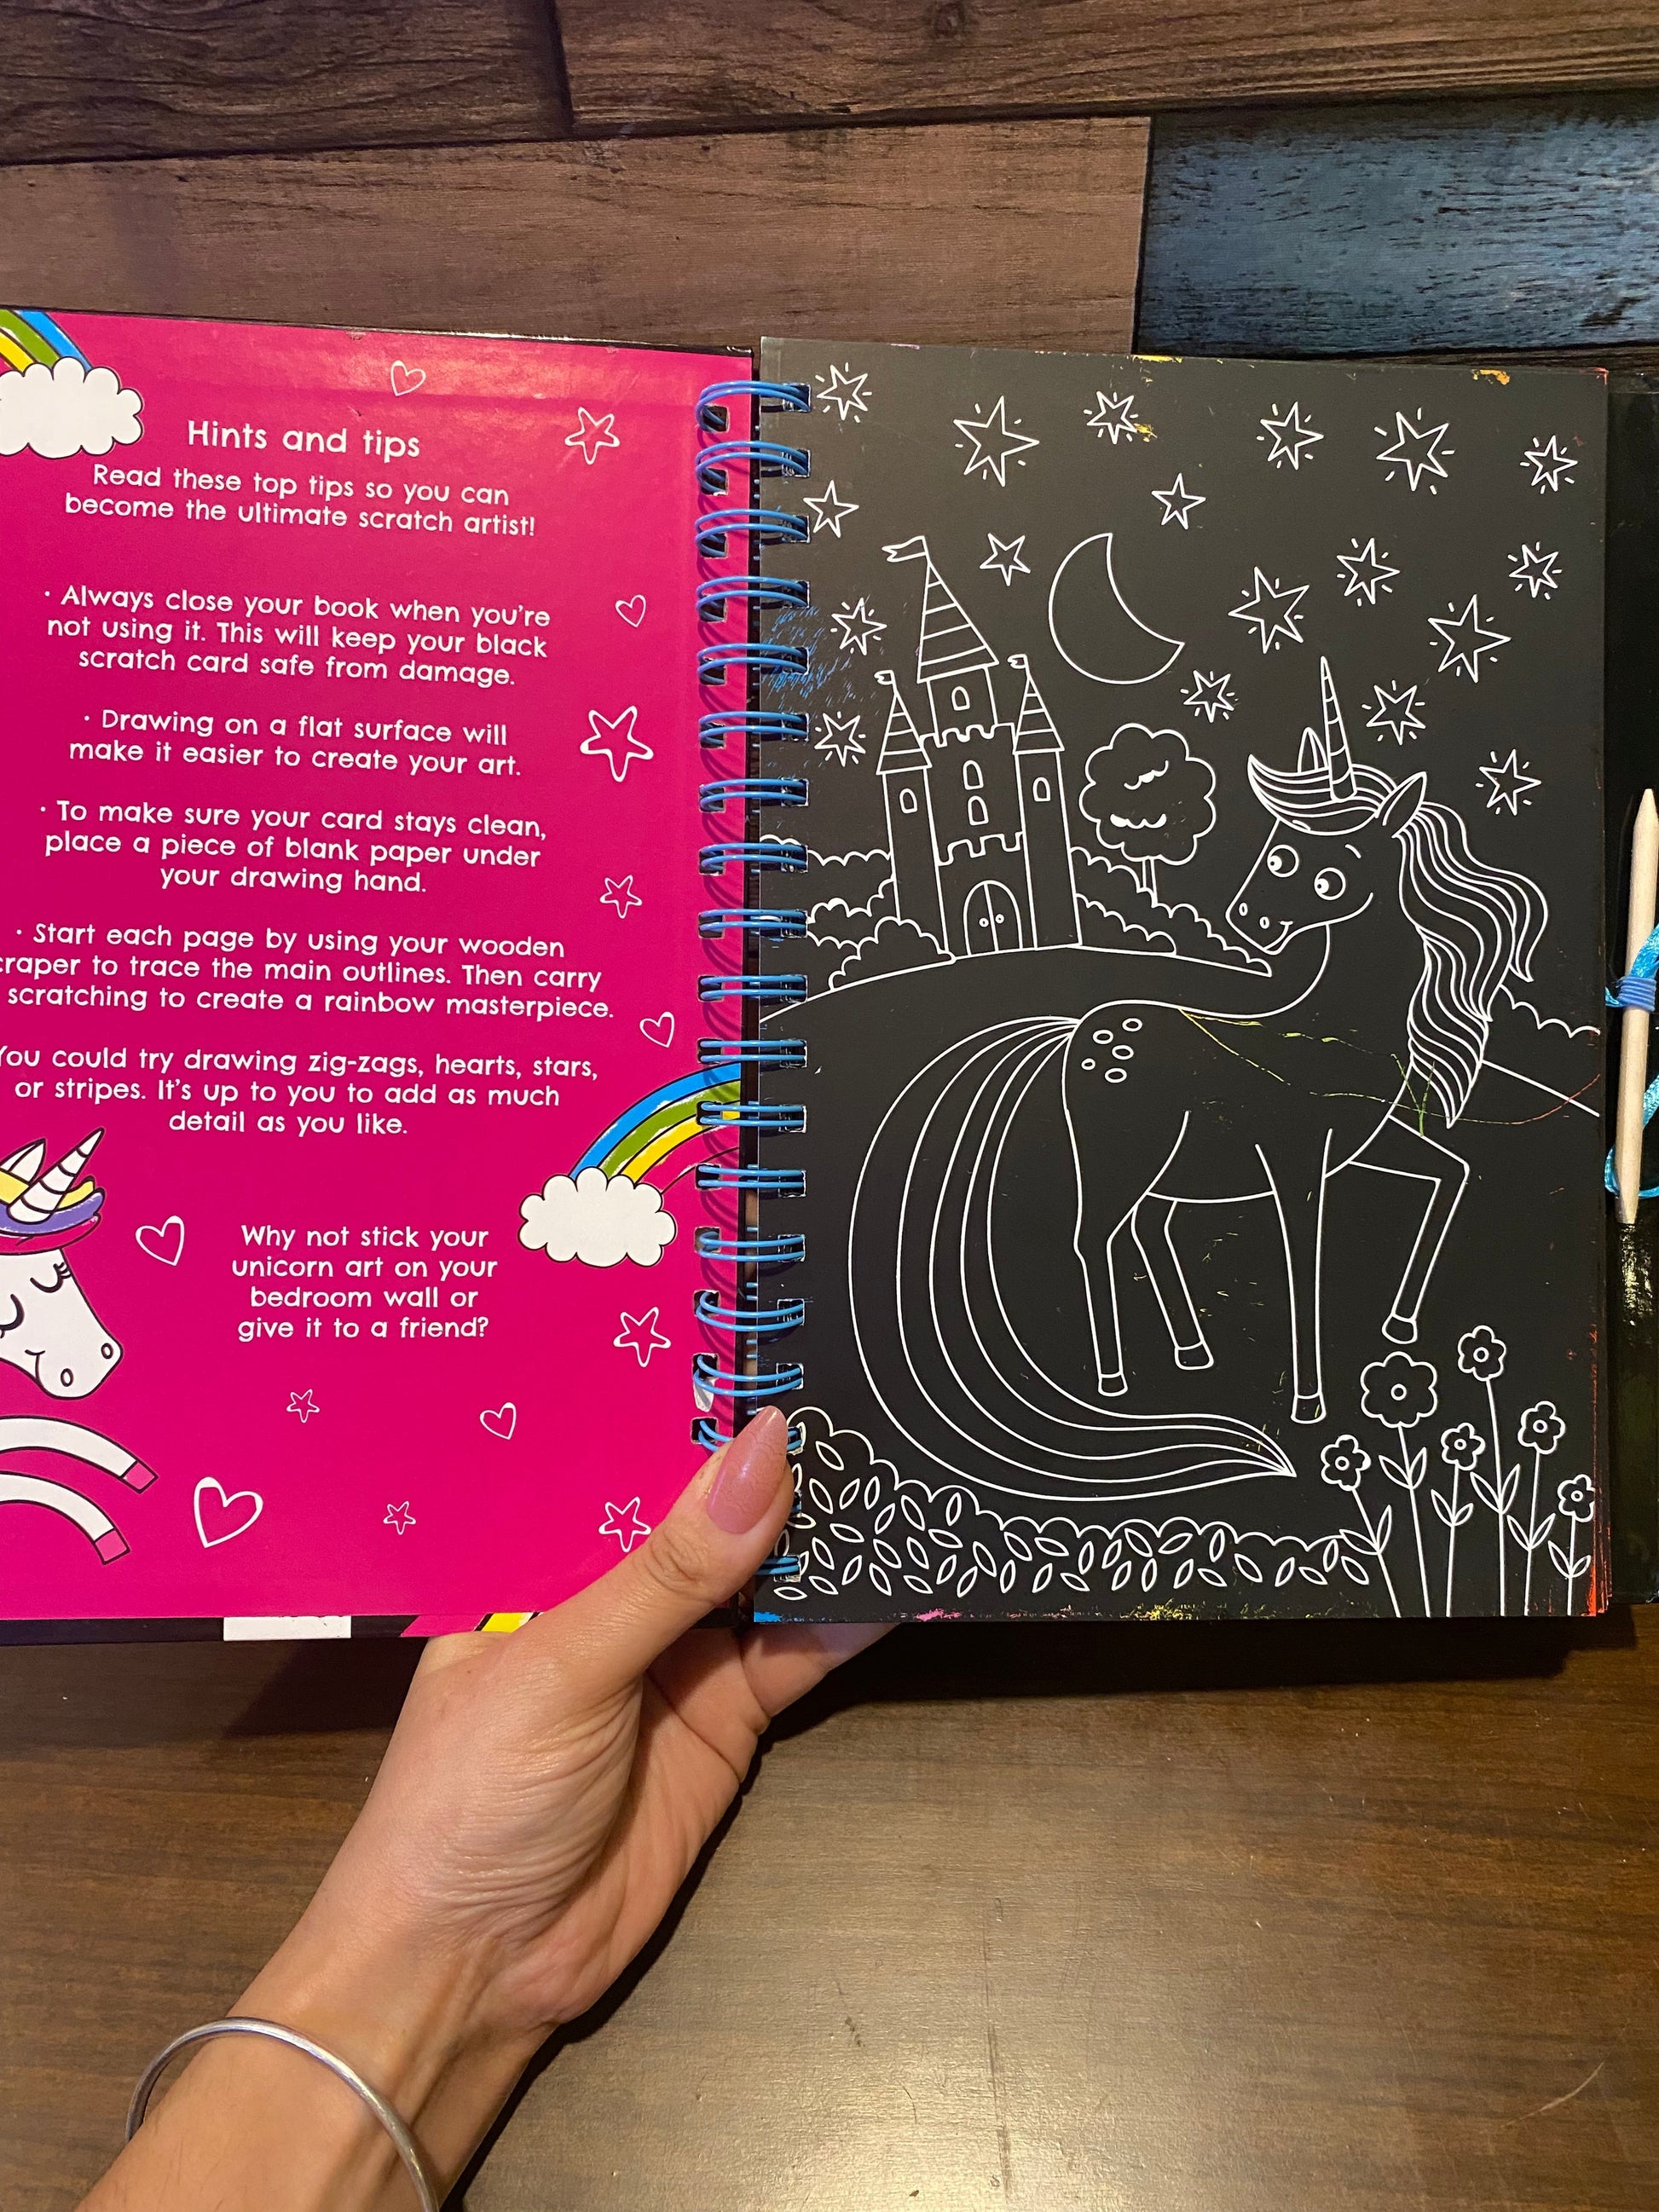 Hints and tips
Read these top tips so you can
become the ultimate scratch artist!
· Always close your book when you're
not using it. This will keep your black
scratch card safe from damage.
· Drawing on a flat surface will
make it easier to create your art.
· To make sure your card stays clean,
place a piece of blank paper under
your drawing hand.
· Start each page by using your wooden
craper to trace the main outlines. Then carry
scratching to create a rainbow masterpiece.
You could try drawing zig-zags, hearts, stars,
or stripes. It's up to you to add as much
detail as you like.
Why not stick your
unicorn art on your
bedroom wall or
give it to a friend?